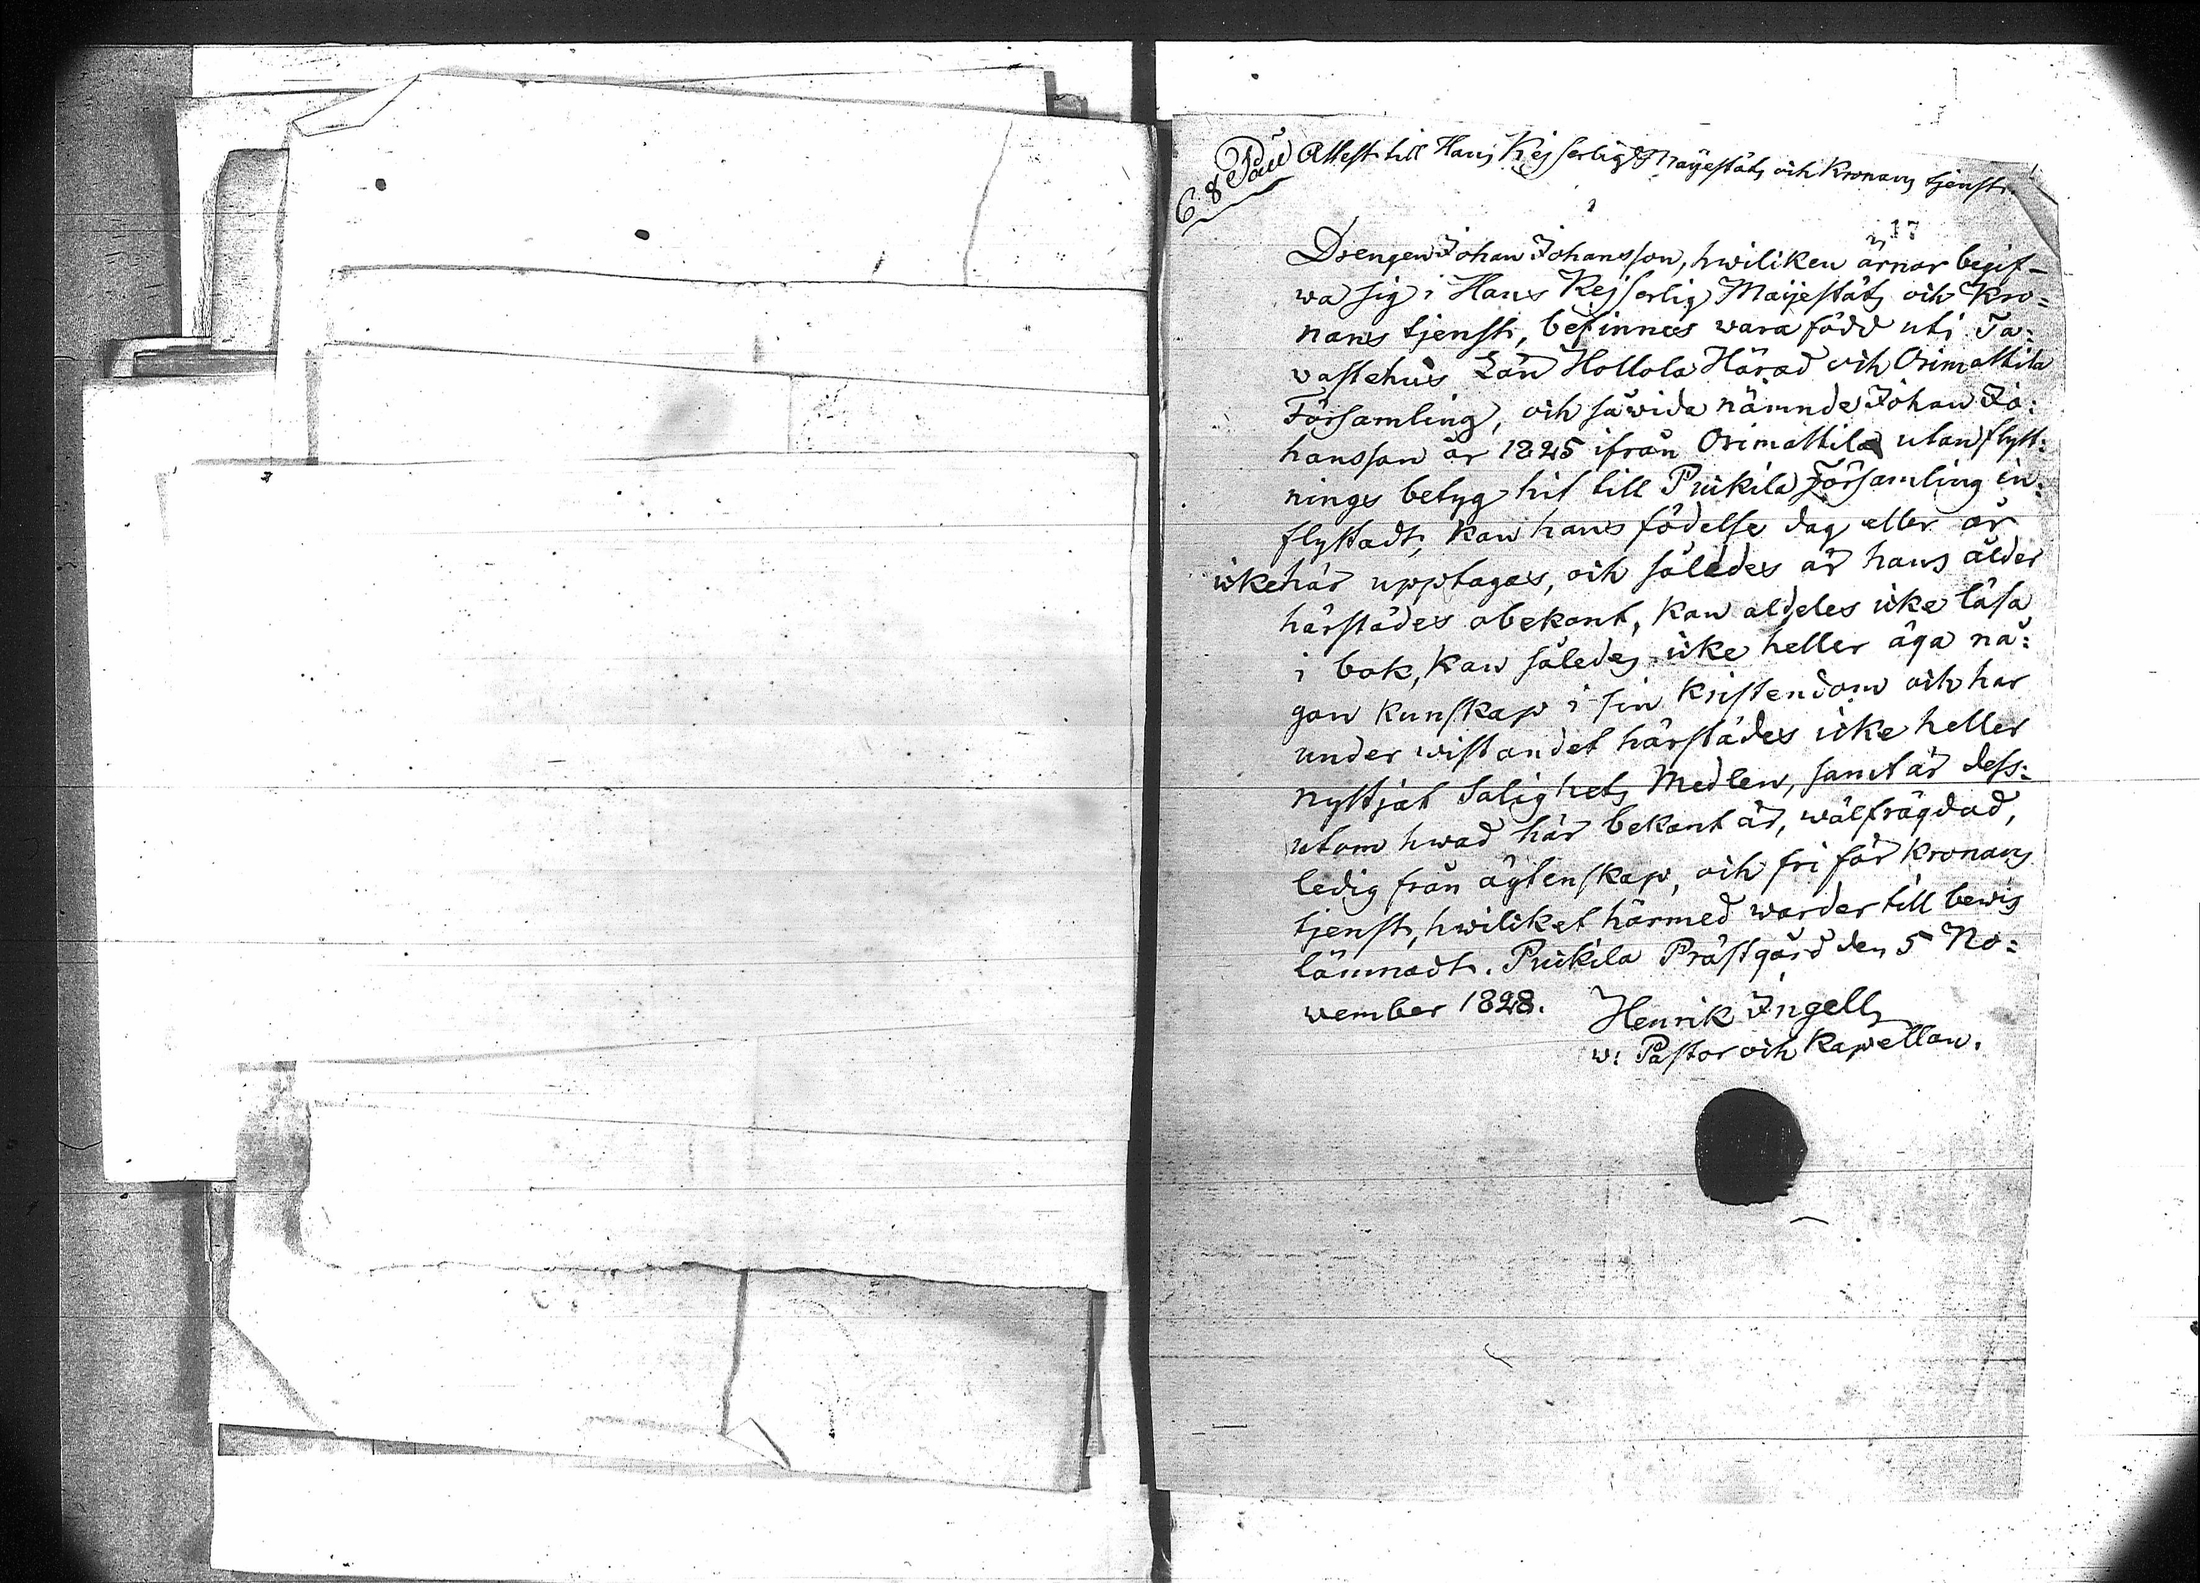 C. 8 Pau
Attest till Hans Kejserlig Maijestäts och Kronans tjenst.
17
Drengen Johan Johansson, hwiliken ärnar begif-
wa sig i Hans Kejserlig Maijestäts och Kro=
nans tjenst, befinnes wara född uti Ta:
wastehus Län Hollola Härad och Orimattila
Församling, och såwida nämnde Johan Jo:
hansson år 1825 ifrån Orimattila utan flytt:
nings betyg hit till Pukkila Församling in:
flyttadt, kan hans födelse dag eller år
icke här upptagas, och således är hans ålder
härstädes obekant, kan aldeles icke läsa
i bok, kan således icke heller äga nå:
gon kunskap i sin kristendom och har
under wistandet härstädes icke heller
nyttjat Salighets Medlen, samt är dess:
utom hwad här bekant är, wälfrägdad,
ledig från ägtenskap, och fri för kronans
tjenst, hwiliket härmed warder till bewis
lämnadt. Pukkila Prästgård den 5 No:
wember 1828.
Henrik Ingells
w: Pastor och Kapellan.